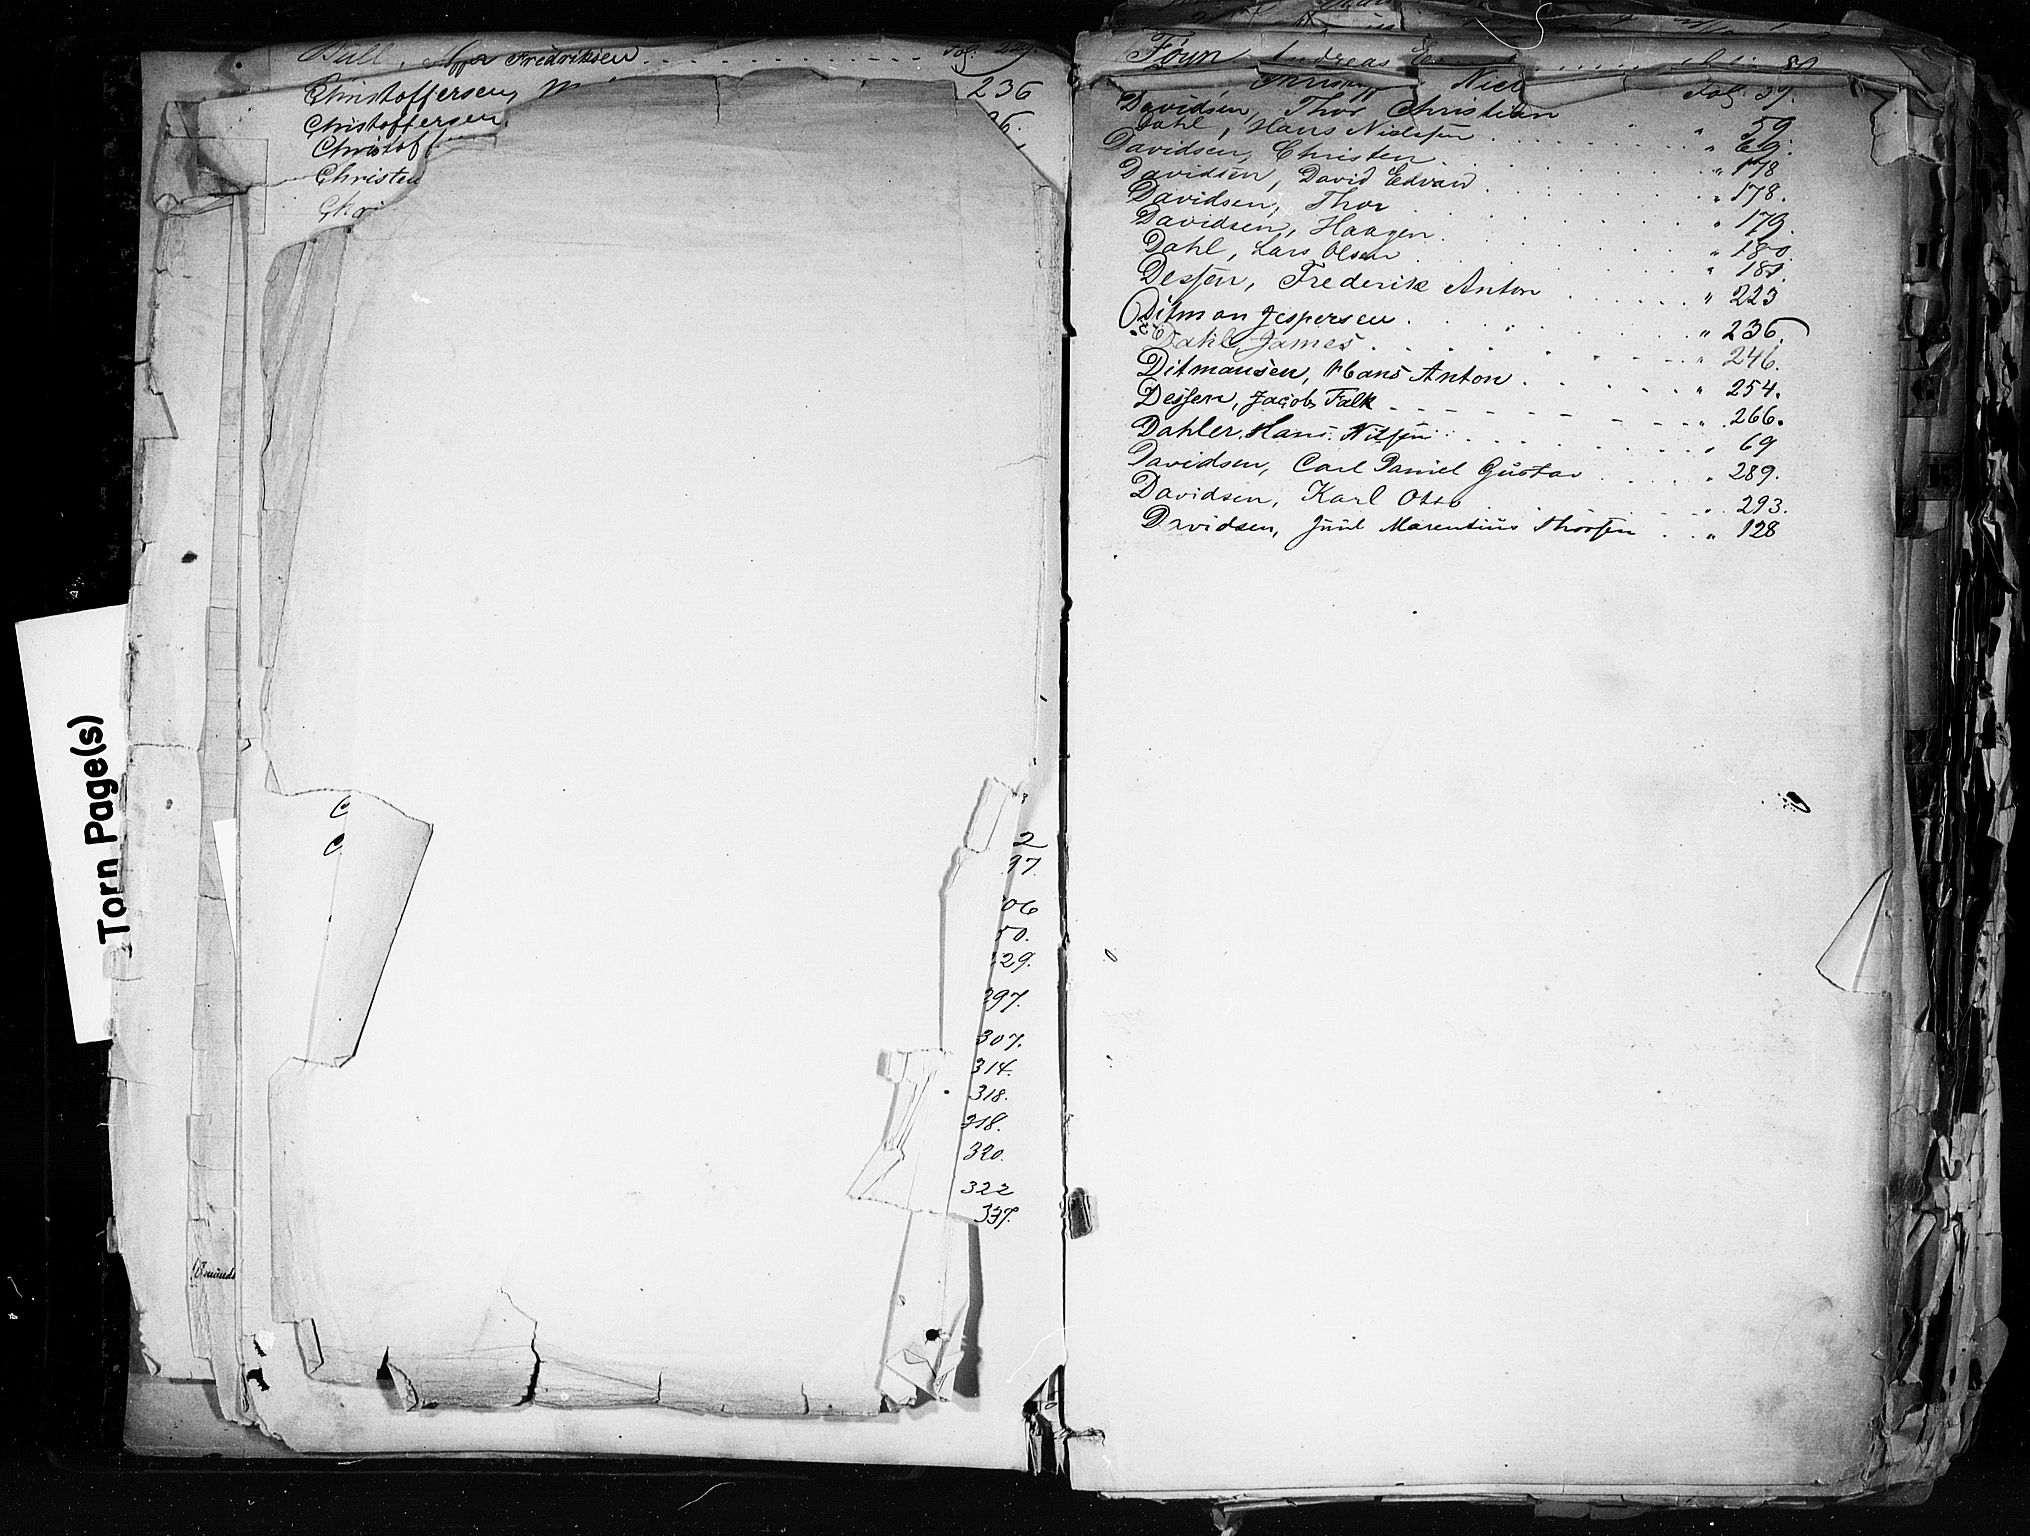 Fredriksen Fol. 229.
Christoffersen, 236
Christoffersen.
Christoff
Christen
Chri
C
C
2
97.
06
50.
29.
297.
307.
314.
318.
318.
320.
322
337.
Torn Page(s)
Føyn Andreas
Niel Fol. 39.
Davidsen, Thor Christian
Dahl, Hans Nielssen " 59.
Davidsen, Christen " 69.
Davidsen, David Edvard " 178
Davidsen, Thor " 178.
Davidsen, Haagen " 179.
Dahl, Lars Olsen " 180.
Dessen, Frederik Anton " 223
Ditman Jespersen " 236.
Dahl, James " 246.
Ditmansen, Hans Anton " 254.
Dessen, Jacob Falk " 266.
Dahler, Hans Nilssen " 69
Davidsen, Carl Daniel Gustav " 289.
Davidsen, Karl Otto " 293.
Davidsen, Juul Marentius Thorsen " 128